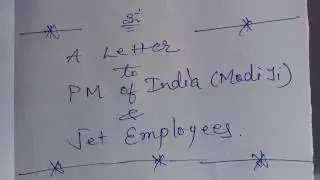 A Letter
to
PM of India (Modi Ji)
&
Jet Employees.